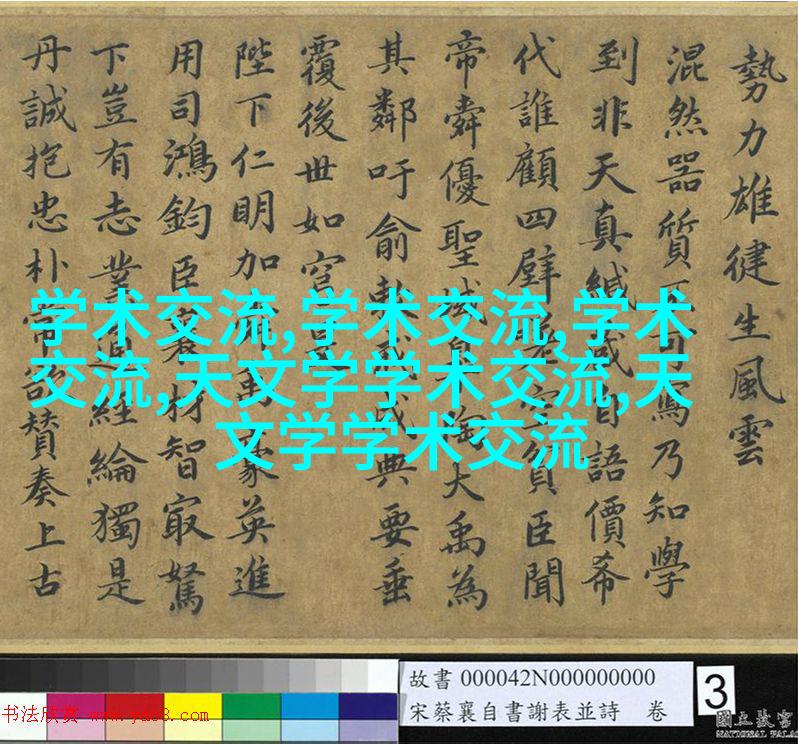 勢力雄徤生風雲
混然器質
寫乃知學
到非天真緘
自語價希
代誰顧四壁
臣聞
帝舜優聖
大禹為
其鄰吁俞
典要垂
覆後世如
陛下仁明加
英進
用司鴻鈞臣
材智㝡駑
下豈有志業
經綸獨是
丹誠抱忠朴
贊奏上古
学术交流,学术交流,学术
交流,天文学学术交流,天
文学学术交流
故書 000042N000000000
宋蔡襄自書謝表並詩 卷
3
书法欣赏 www.yac8.com
國立故宮
NATIONAL PALA